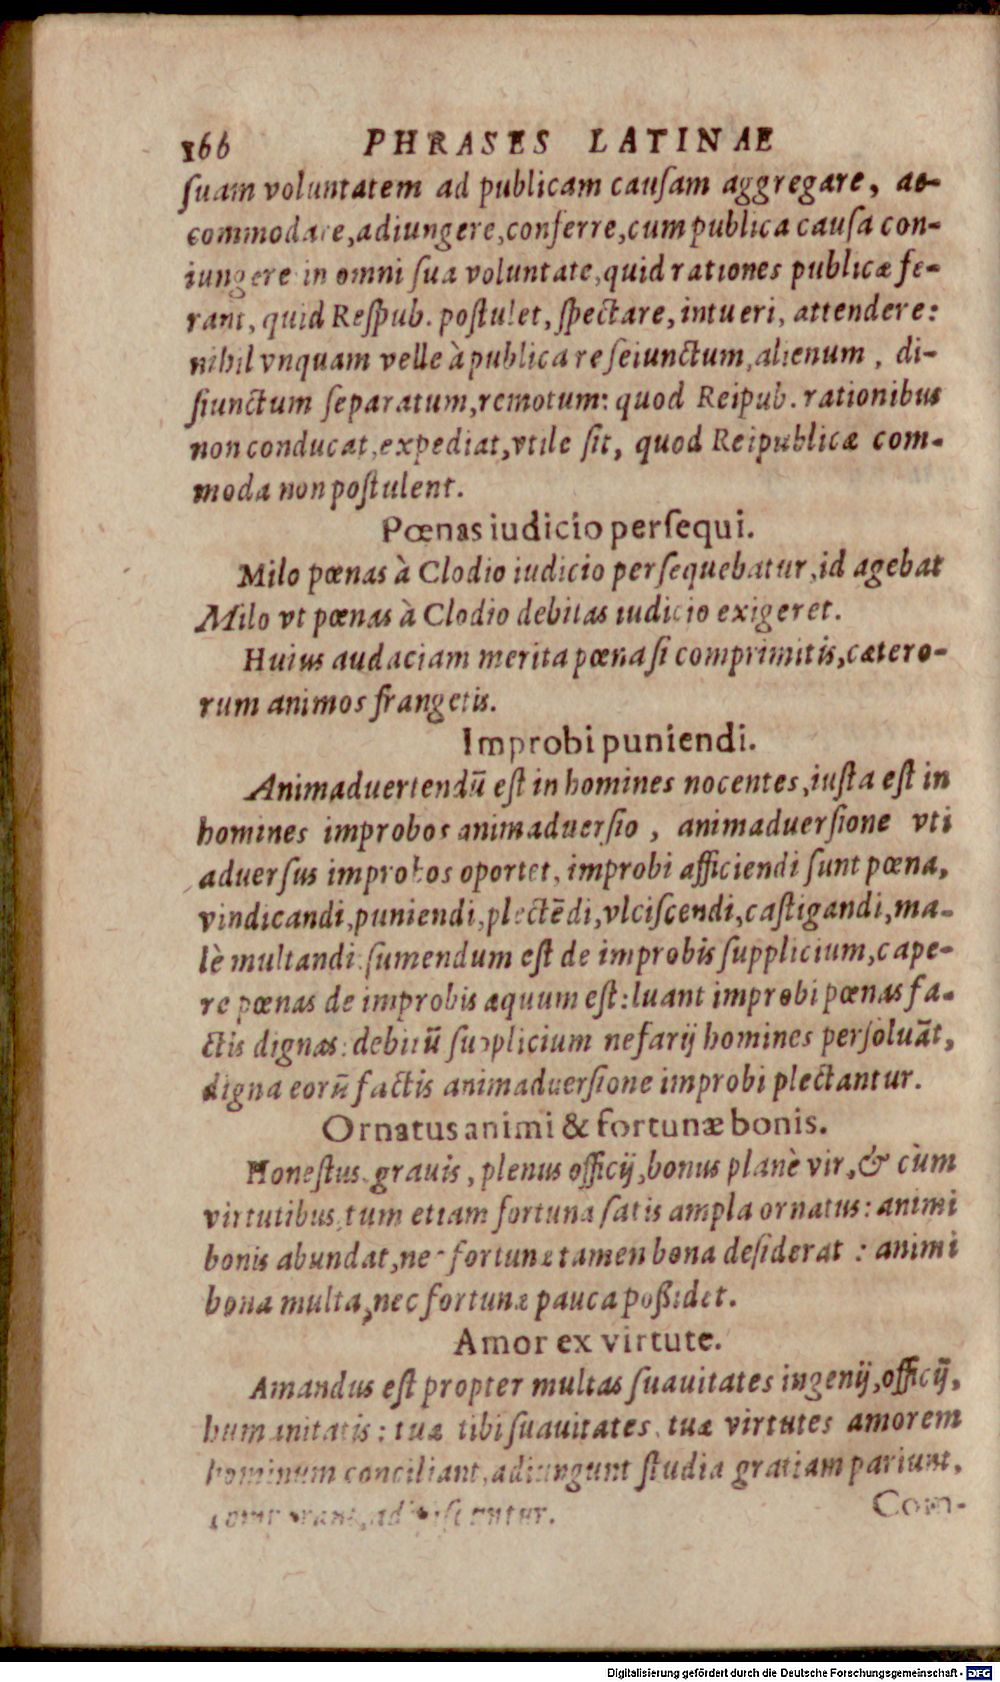 166 PHRASES LATINAE
suam voluntatem ad publicam causam aggregare, ac-
commodare, adiungere, conferre, cum publica causa con-
iungere in omni sua voluntate, quid rationes publicæ fe-
rant, quid Respub. postulet, spectare, intueri, attendere:
nihil vnquam velle à publica re seiunctum, alienum, di-
siunctum separatum, remotum: quod Reipub. rationibus
non conducat, expediat, vtile sit, quod Reipublicæ com-
moda non postulent.
Pœnas iudicio persequi.
Milo pœnas à Clodio iudicio persequebatur, id agebat
Milo vt pœnas à Clodio debitas iudicio exigeret.
Huius audaciam merita pœna si comprimitis, cætero-
rum animos frangetis.
Improbi puniendi.
Animaduertendū est in homines nocentes, iusta est in
homines improbos animaduersio, animaduersione vti
aduersus improbos oportet, improbi afficiendi sunt pœna,
vindicandi, puniendi, plectēdi, vlciscendi, castigandi, ma-
lè multandi: sumendum est de improbis supplicium, cape-
re pœnas de improbis æquum est: luant improbi pœnas fa-
ctis dignas: debitū supplicium nefarij homines persoluāt,
digna eorū factis animaduersione improbi plectantur.
Ornatus animi & fortunæ bonis.
Honestus, grauis, plenus officij, bonus planè vir, & cùm
virtutibus, tum etiam fortuna satis ampla ornatus: animi
bonis abundat, nec fortunæ tamen bona desiderat: animi
bona multa, nec fortunæ pauca possidet.
Amor ex virtute.
Amandus est propter multas suauitates ingenij, officij,
humanitatis: tuæ tibi suauitates, tuæ virtutes amorem
hominum conciliant, adiungunt studia gratiam pariunt,
Com-
Digitalisierung gefördert durch die Deutsche Forschungsgemeinschaft - DFG